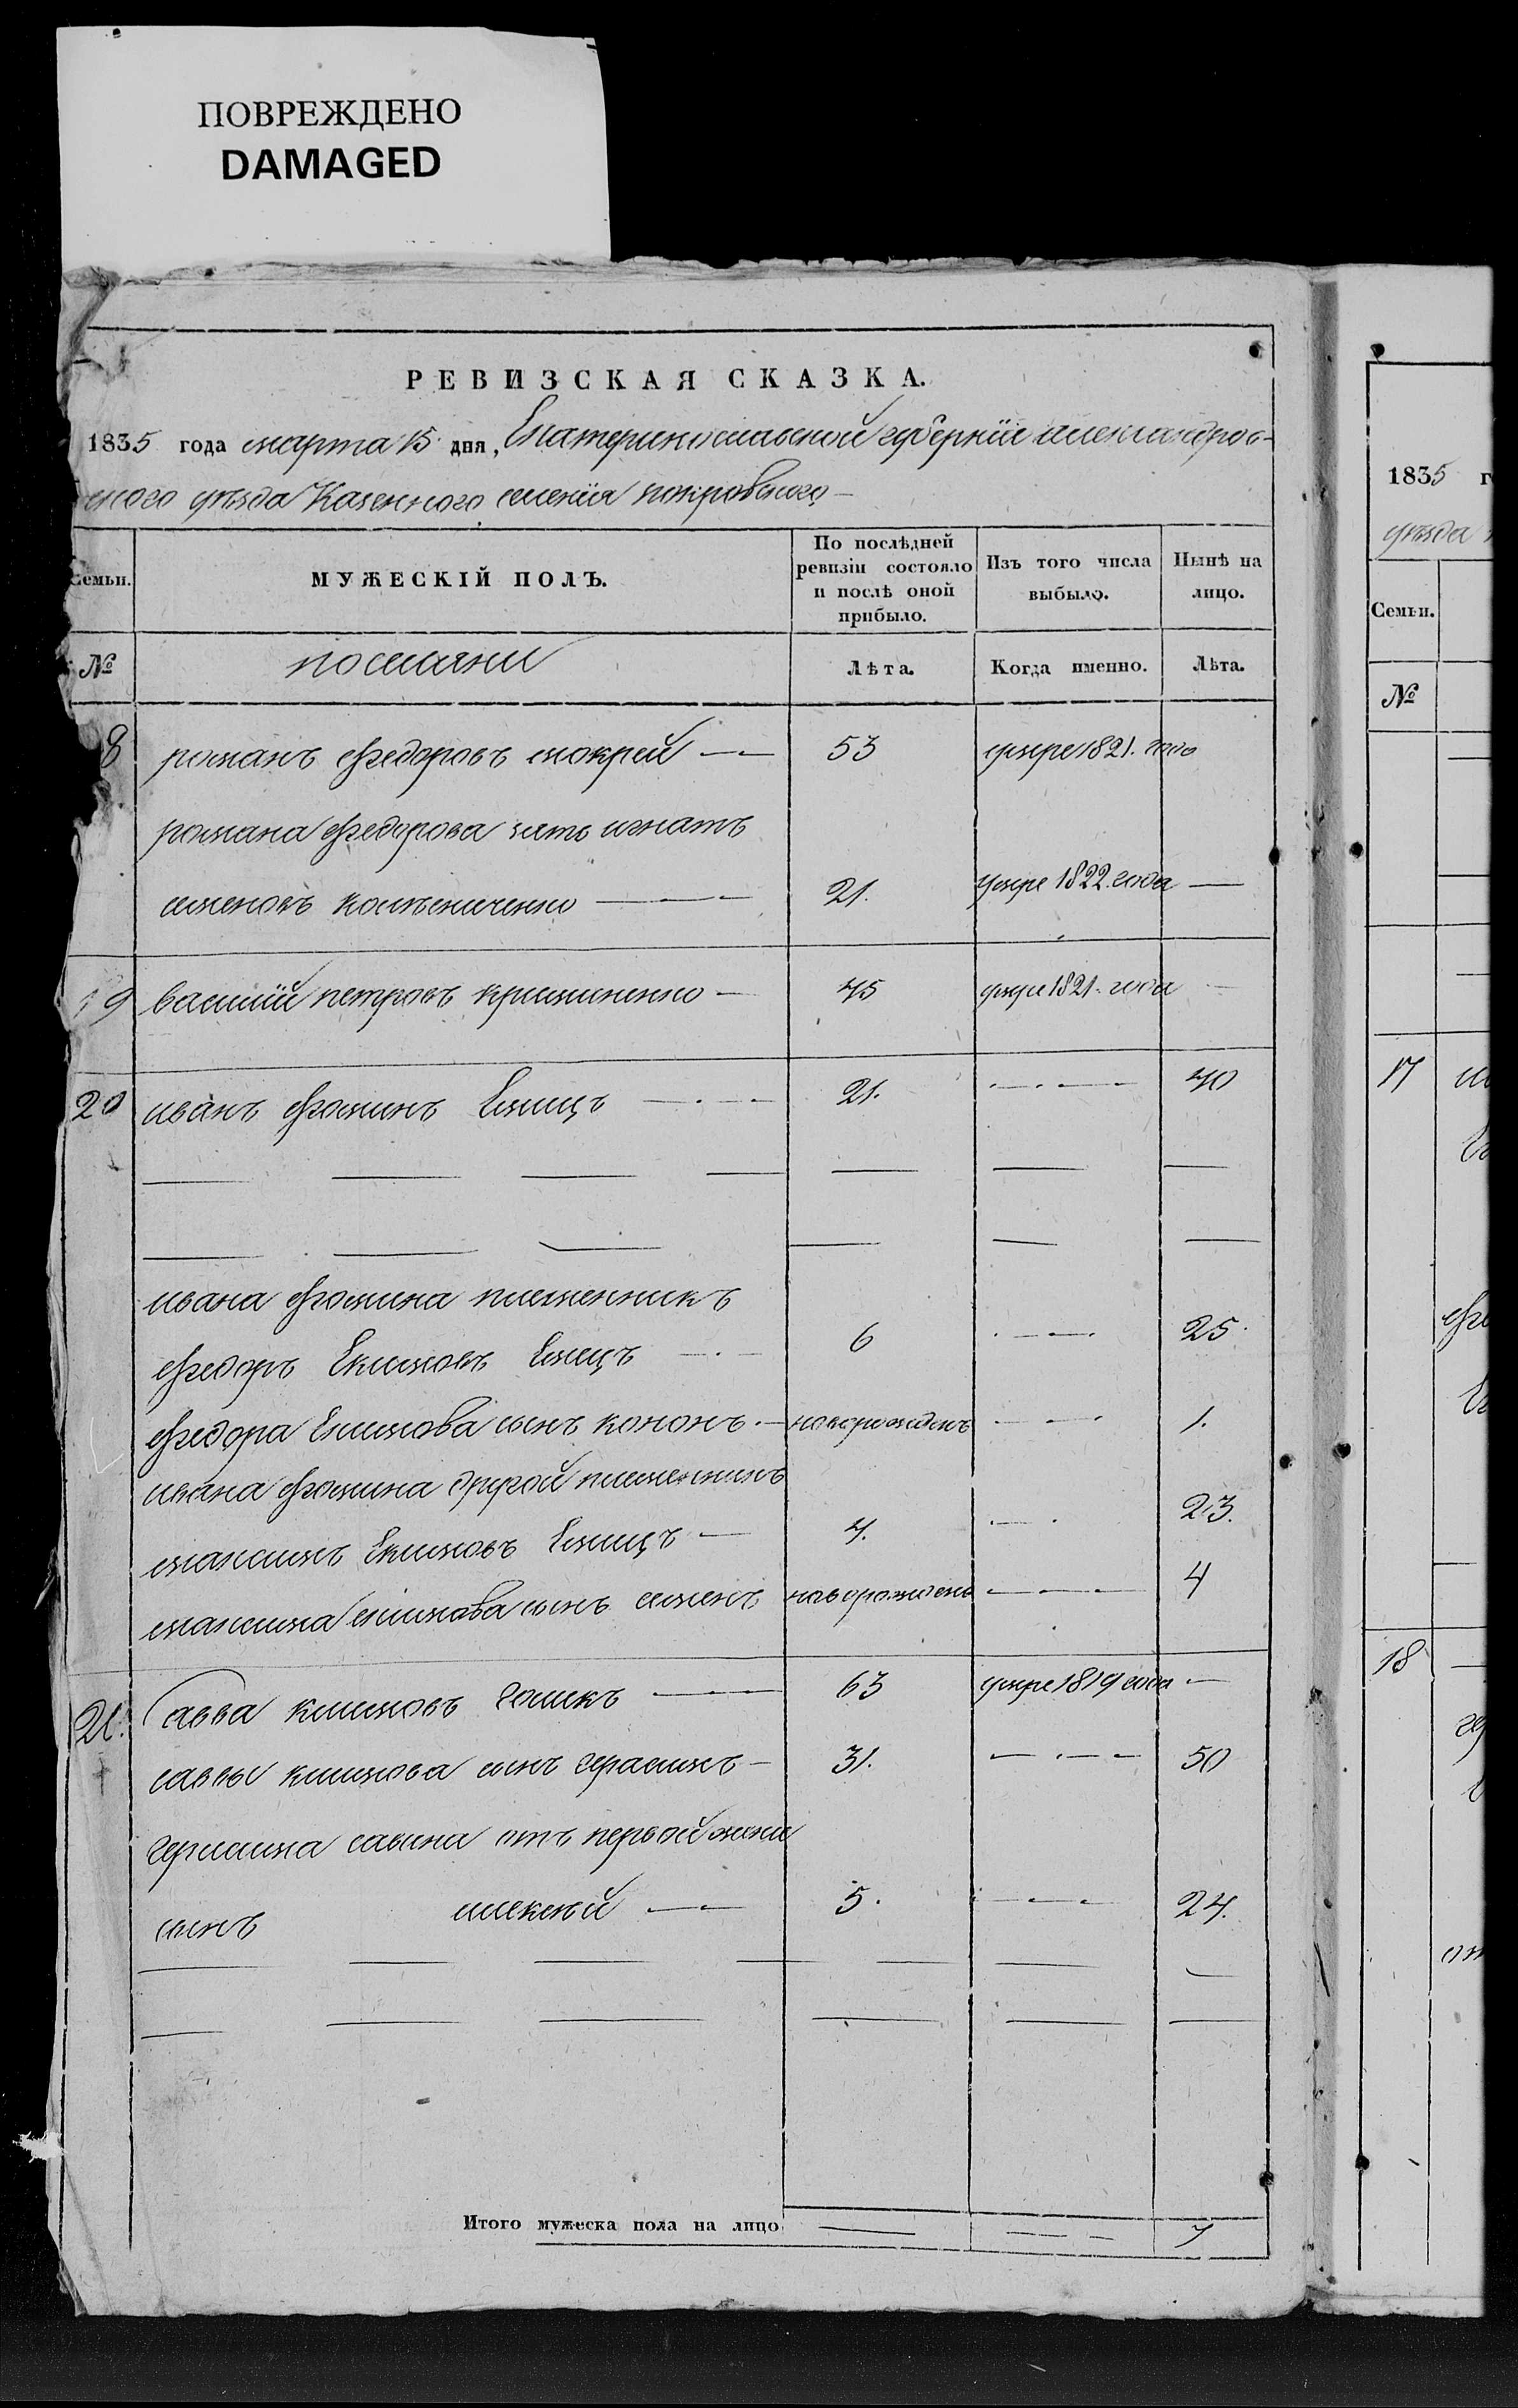 ПОВРЕЖДЕНО
DAMAGED
РЕВИЗСКАЯ СКАЗКА.
1835 года марта 15 дня, Екатеринославской губерніи александров-
ского уѣзда Казенного селенія покровского
Семьи. МУЖЕСКІЙ ПОЛЪ. По послѣдней ревизіи состояло и послѣ оной прибыло. Изъ того числа выбыло. Нынѣ на лицо.
№ поселяни Лѣта. Когда именно. Лѣта.
8 романъ федоровъ мокрей 53 умре 1821. года
романа федорова зять игнатъ
семеновъ 21. умре 1822. года
19 василій петровъ 45 умре 1821. года
20 иванъ фоминъ Емецъ 21. 40
ивана фомина племенникъ
федоръ Екимовъ Емецъ 6 25.
федора Екимова сынъ кононъ новорожденъ 1.
ивана фомина другой племенникъ
максимъ Екимовъ Емецъ 4. 23.
максима екимова сынъ семенъ новорожденъ 4
21. Савва климовъ голикъ 63 умре 1819 года
саввы климова сынъ герасимъ 31. 50
герасима савина отъ первой жени
сынъ алексѣй 5. 24.
Итого мужеска пола на лицо 7
1835 г
уѣзда
Семьи.
№
17
18